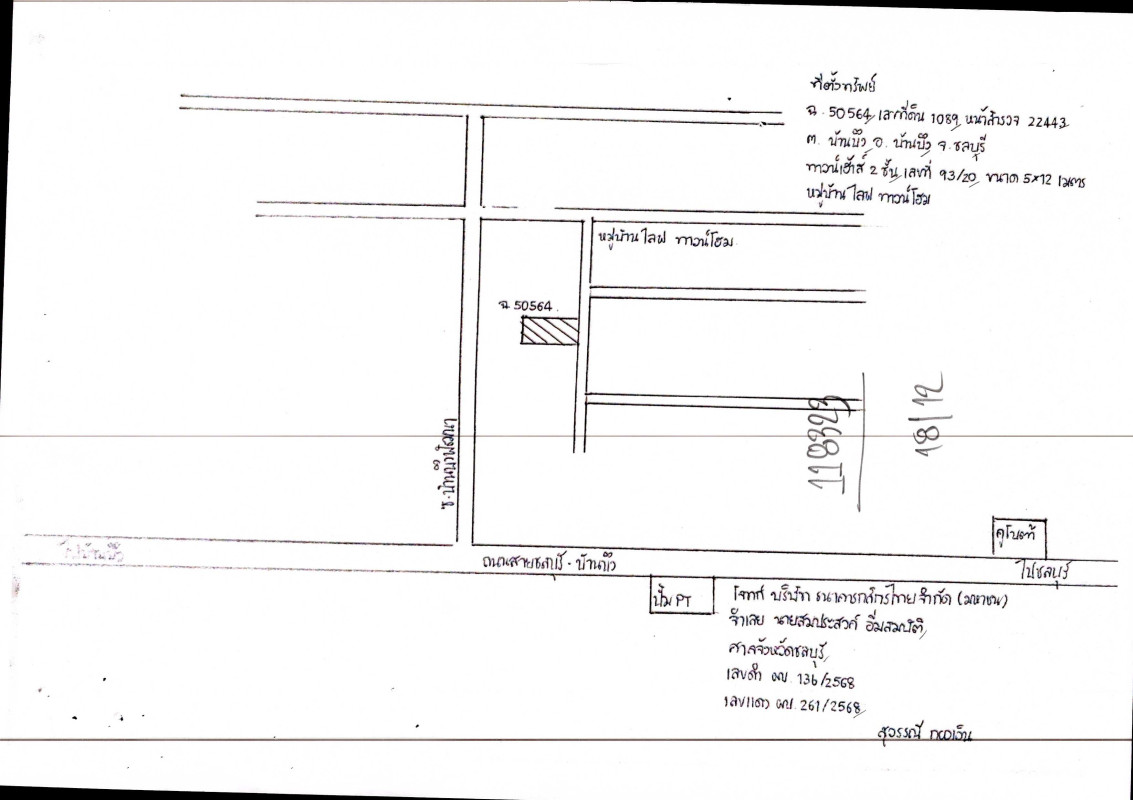 ที่ตั้งทรัพย์
ฉ. 50564, เลขที่ดิน 1089, หน้าสำรวจ 22443
ต. บ้านบึง อ. บ้านบึง จ. ชลบุรี
ทาวน์เฮ้าส์ 2 ชั้น, เลขที่ 93/20, ขนาด 5×12 เมตร
หมู่บ้าน ไลฟ ทาวน์โฮม
หมู่บ้าน ไลฟ ทาวน์โฮม
ฉ. 50564
118323
18/12
ซ. บ้านบึงพัฒนา
คูโบต้า
ไปบ้านบึง
ถนนสายชลบุรี - บ้านบึง
ไปชลบุรี
ปั๊ม PT
โจทก์ บริษัท ธนาคารกสิกรไทย จำกัด (มหาชน)
จำเลย นายสมประสงค์ อิ่มสมบัติ
ศาลจังหวัดชลบุรี
เลขดำ ผบ. 136/2568
เลขแดง ผบ. 261/2568
สุวรรณี